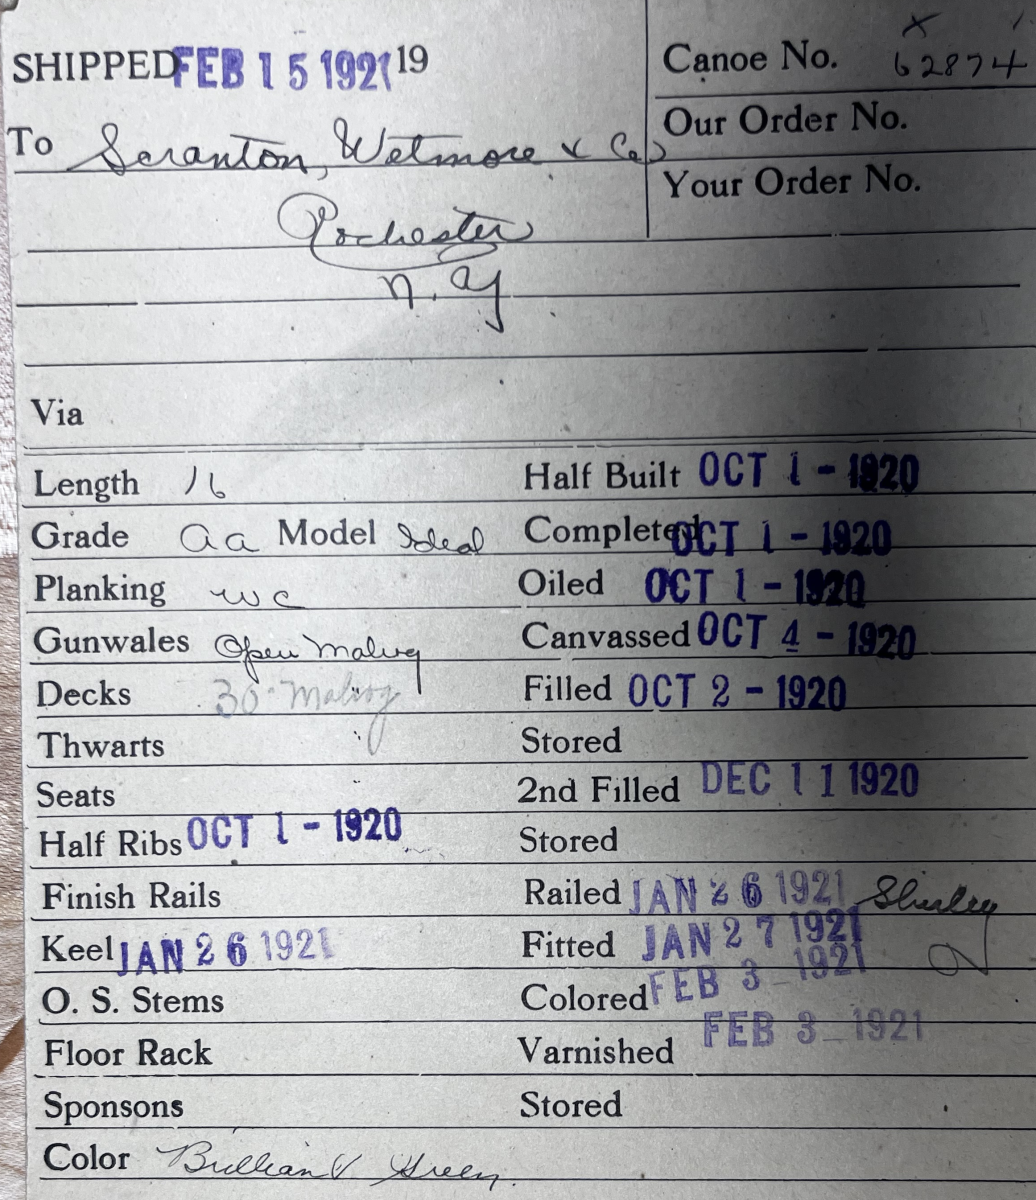 SHIPPED FEB 15 1921 19
Canoe No. 62874
Our Order No.
To Scranton, Wetmore & Co
Your Order No.
Rochester
N. Y
Via
Length 16 Half Built OCT 1 - 1920
Grade aa Model Ideal Completed OCT 1 - 1920
Planking wc Oiled OCT 1 - 1920
Gunwales Open Mahog Canvassed OCT 4 - 1920
Decks 30 - Mahog Filled OCT 2 - 1920
Thwarts Stored
Seats 2nd Filled DEC 11 1920
Half Ribs OCT 1 - 1920 Stored
Finish Rails Railed JAN 26 1921 Shirley
Keel JAN 26 1921 Fitted JAN 27 1921
O. S. Stems Colored FEB 3 - 1921
Floor Rack Varnished FEB 3 - 1921
Sponsons Stored
Color Brilliant Green.